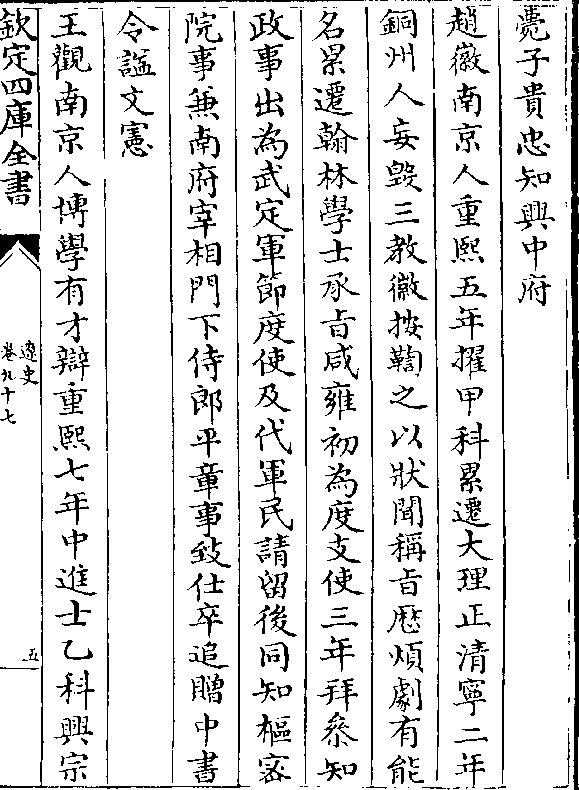 薨子貴忠知興中府
趙徽南京人重熙五年擢甲科累遷大理正清寧二年
銅州人妄毀三教徽按鞫之以狀聞稱旨歷煩劇有能
名累遷翰林學士承旨咸雍初為度支使三年拜叅知
政事出為武定軍節度使及代軍民請留後同知樞密
院事兼南府宰相門下侍郎平章事致仕卒追贈中書
令諡文憲
王觀南京人博學有才辯重熙七年中進士乙科興宗
欽定四庫全書
遼史
卷九十七
五